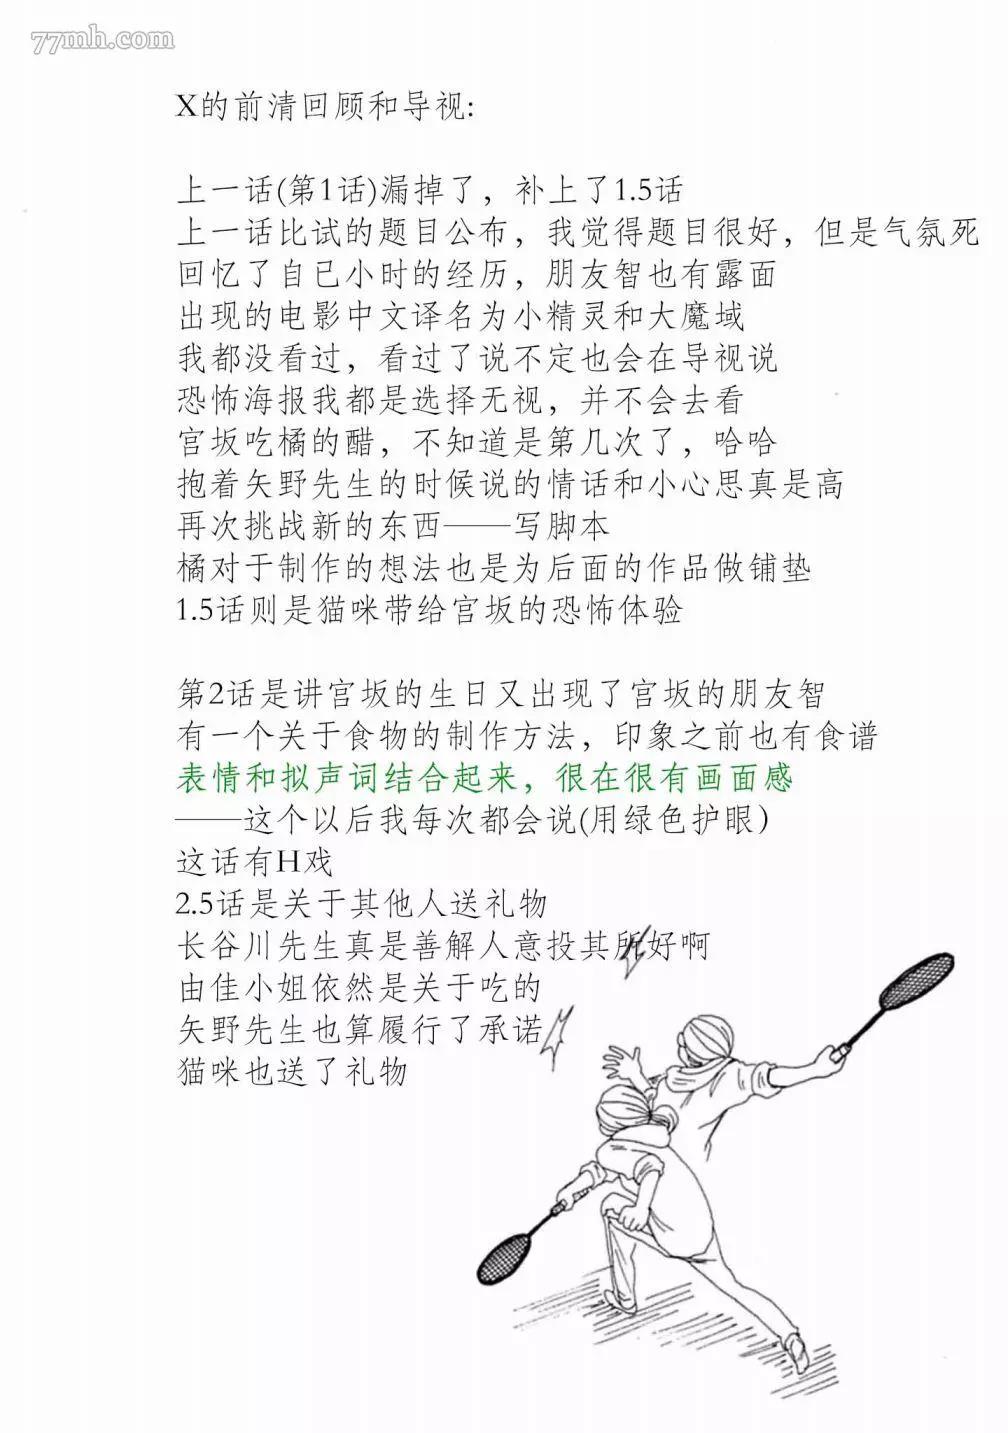 77mh.com
X的前清回顾和导视:
上一话(第1话)漏掉了，补上了1.5话
上一话比试的题目公布，我觉得题目很好，但是气氛死
回忆了自已小时的经历，朋友智也有露面
出现的电影中文译名为小精灵和大魔域
我都没看过，看过了说不定也会在导视说
恐怖海报我都是选择无视，并不会去看
宫坂吃橘的醋，不知道是第几次了，哈哈
抱着矢野先生的时候说的情话和小心思真是高
再次挑战新的东西——写脚本
橘对于制作的想法也是为后面的作品做铺垫
1.5话则是猫咪带给宫坂的恐怖体验
第2话是讲宫坂的生日又出现了宫坂的朋友智
有一个关于食物的制作方法，印象之前也有食谱
表情和拟声词结合起来，很在很有画面感
——这个以后我每次都会说(用绿色护眼)
这话有H戏
2.5话是关于其他人送礼物
长谷川先生真是善解人意投其所好啊
由佳小姐依然是关于吃的
矢野先生也算履行了承诺
猫咪也送了礼物